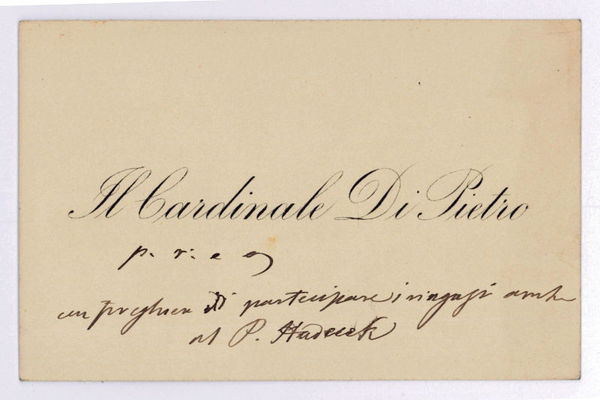 Il Cardinale Di Pietro
p. r. e
con preghiera di partecipare i ringrazi anche
al P.